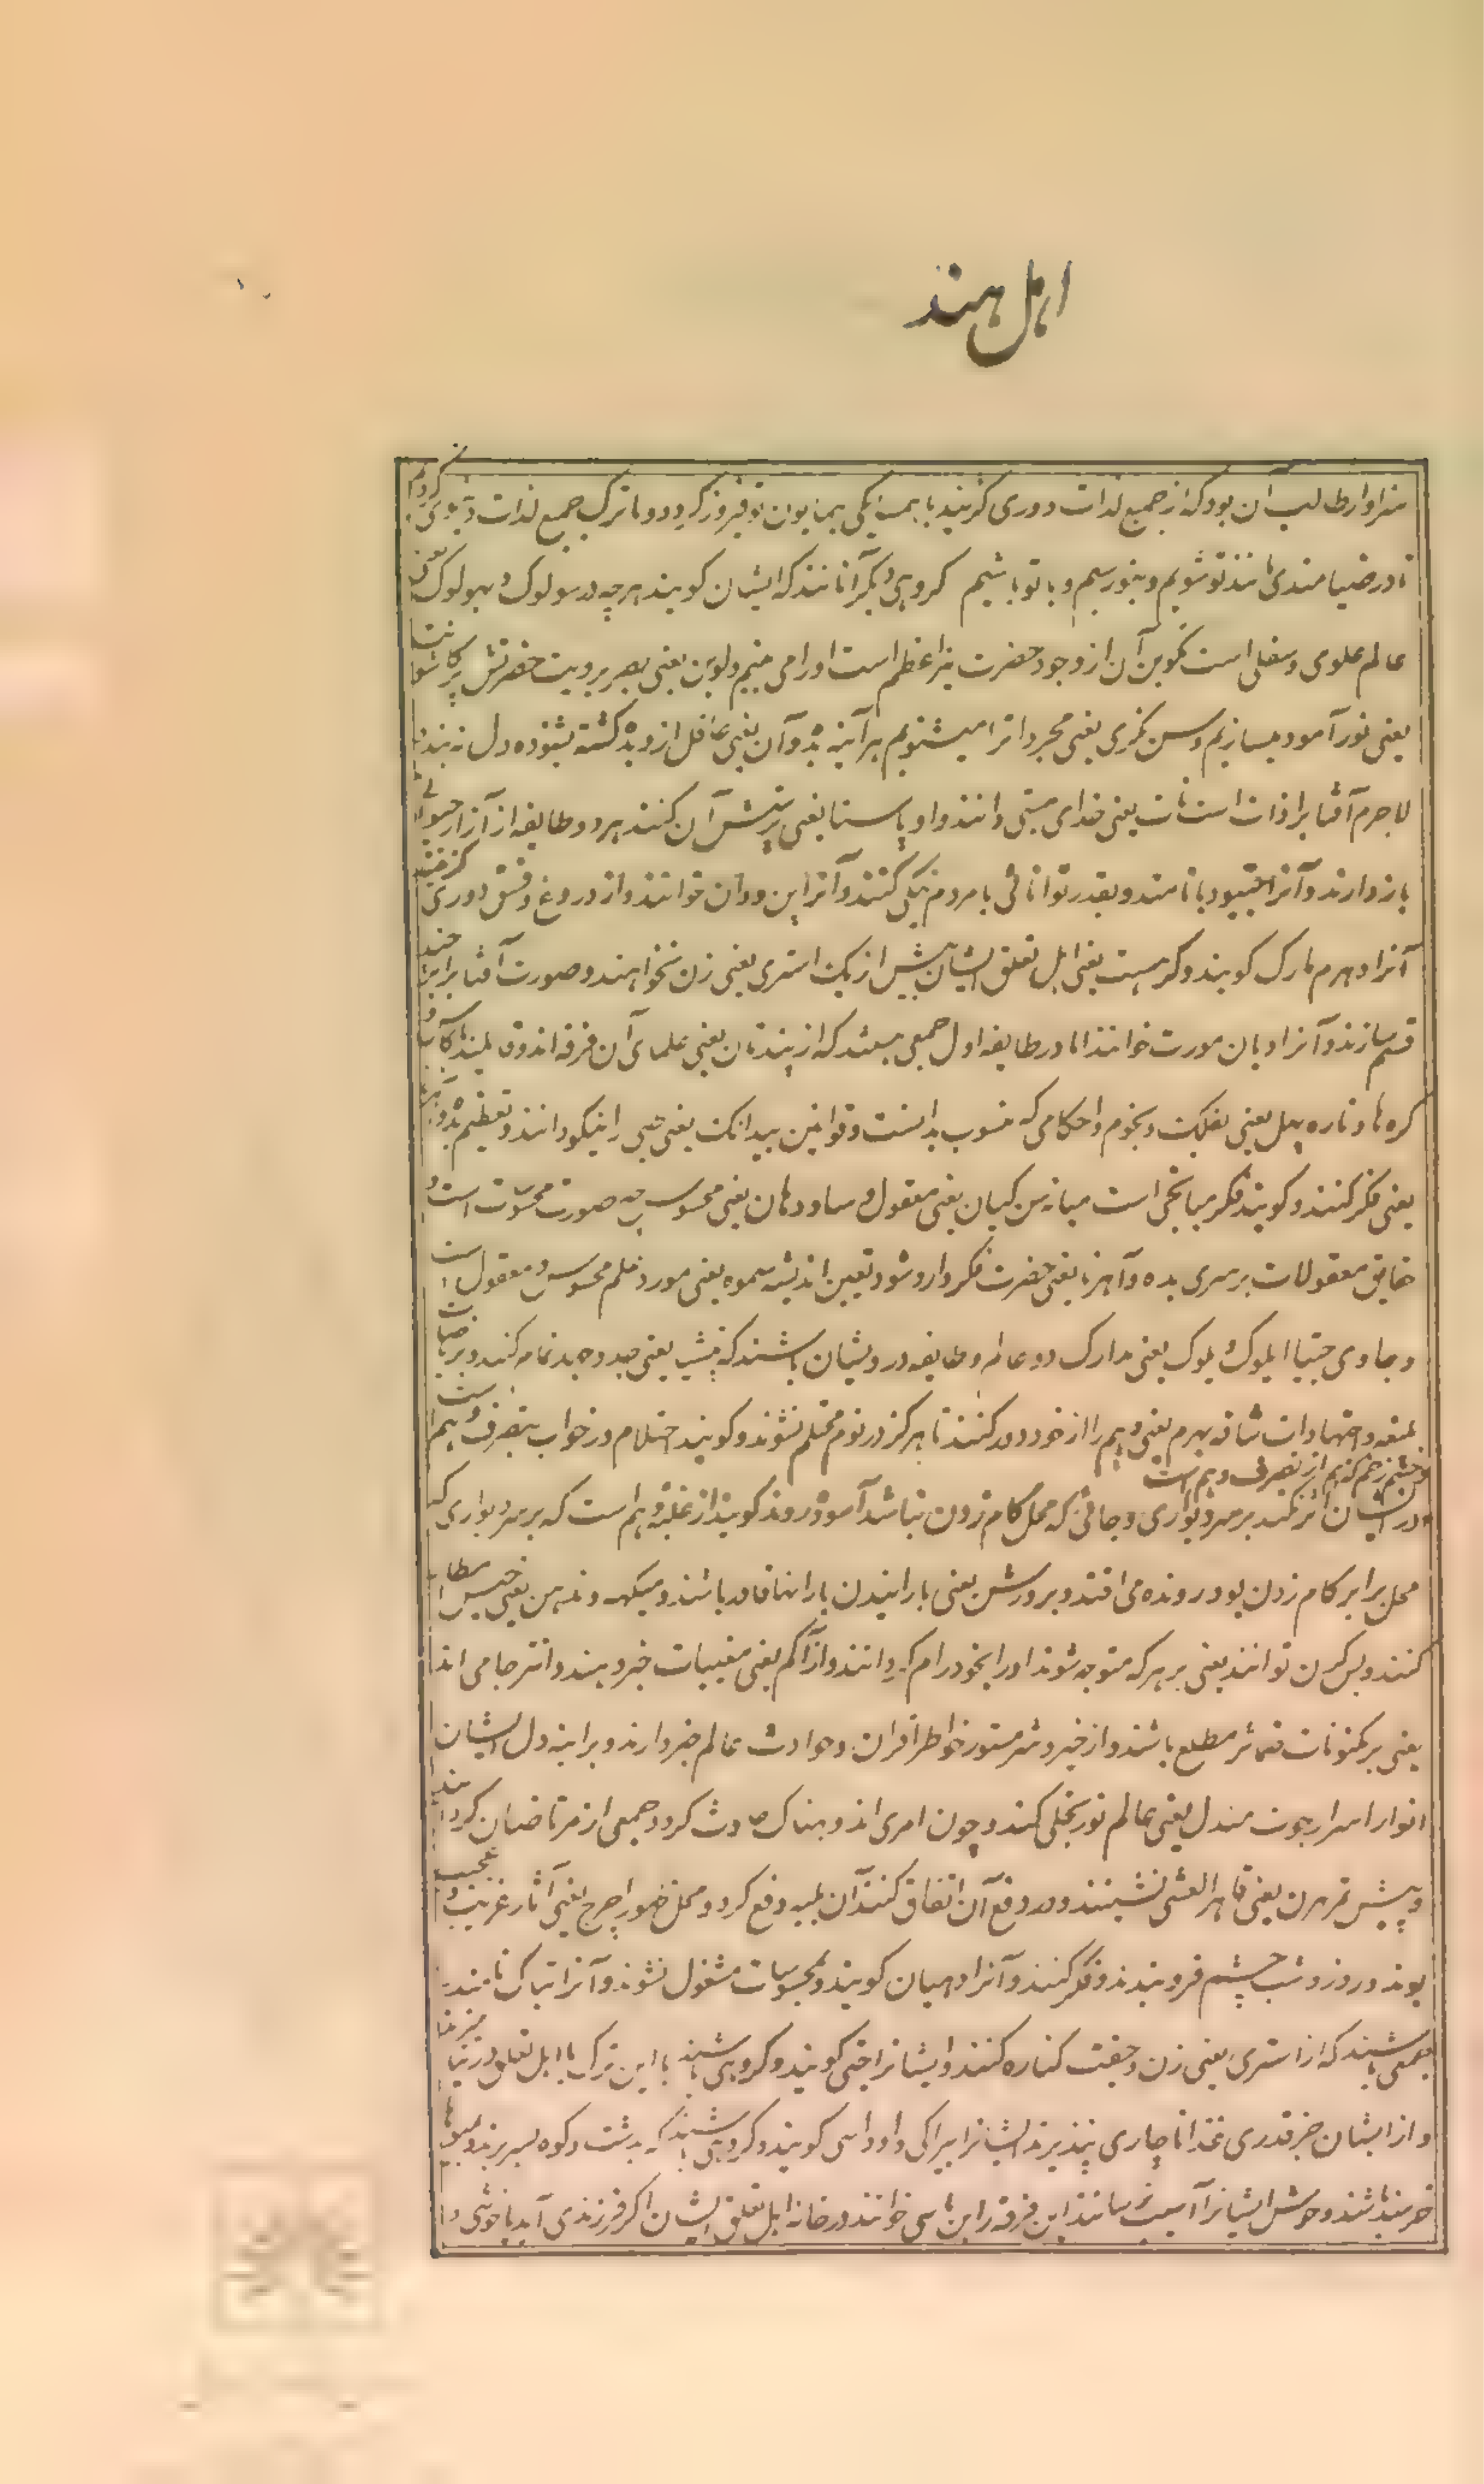 اهل هند
سزاوار طالب آن بود که از جمیع لذات دوری گزیند با همسایکی همایون تو فیروز گردد و ما ترک جمیع لذات دنیوی کردیم
تا در ضیا مندی مانند تو شویم و بتو رسیم و با تو باشیم کروهی دیگر آنانند که ایشان کویند هرچه در سولوک و بهولوک یعنی
عالم علوی و سفلی است تکوین آن از وجود حضرت نیر اعظم است او را می بینیم و لوچن یعنی بصر برویت حضرتش پرکاشوانت
یعنی نور آمود میسازیم و سن کری یعنی مجرد انرا میشنویم هرآینه بدوان یعنی عاقل از دیده گشته بشنوده دل نه بندد
لاجرم آفتابرا ذات است یعنی خدای مبتنی دانند و اوپاسنا یعنی پرستش آن کنند هر دو طایفه از آزار حیوانی
باز دارند و آنرا نامند و بقدر توانائی با مردم نیکی کنند و آنرا پن و دان خوانند و از دروغ و فسق دوری گزینند
آنرا دهرم مارک کویند و کرهست یعنی اهل تعلق ایشان بیش از یک استری یعنی زن نخواهند و صورت آفتابرا بر چند
قسم سازند و آنرا دیان مورت خوانند اما در طایفه اول جمعی هستند که از پندتان یعنی علمای آن فرقه اند و قایلند
کره ها و تاره یعنی بفلک و نجوم و احکامی که منسوب بدانست و قوانین بیدانک یعنی طبی را نیکو دانند و تعظیم
یعنی فکر کنند و کویند فکر میانجی است میانه من کیان یعنی معقول و یعنی محسوس چه صورت محسوسات است و
حقایق معقولات بر سری بده و آهنر یعنی حضرت فکر وارد شود تعین اندیشه سموه یعنی مورد علم محسوس و معقول است
و حاوی ایلوک و پلوک یعنی مدارک دو عالم و طایفه درویشان باشند که یعنی جد و جهد تمام کنند و بریاضات
بلیغه و اجتهادات شاقه بهرم یعنی وهم را از خود دور کنند تا هرگز در نوم محتلم نشوند و کویند احتلام در خواب بتصرف وهم است
و چشم زخم که هم از تصرف وهم است
در ایشان اثر نکند بر سر دیواری و جائی که محل کام زدن نباشد آسوده روند کویند از غلبه وهم است که بر سر دیواری که
محل برابر کام زدن بود رونده می افتد و برورشن یعنی بارانیدن بارانها قادر باشند و میکهه یعنی حبس مطر
کنند و بس کرن توانند یعنی بر هر که متوجه شوند او را بخود رام کردانند و از آکم یعنی مغیبات خبر دهند و انتر جامی اند
یعنی بر مکنونات ضمائر مطلع باشند و از خیر و شر مستور خواطر اقران و حوادث عالم خبر دارند و بر آینه دل ایشان
انوار اسرار جوت مندل یعنی عالم نور تجلی کند و چون امری اندوهناک حادث کردد جمعی از مرتاضان کرد آیند
و پیش یعنی نشینند و در دفع آن اتفاق کنند آن بلیه دفع کردد و محل ظهور اچرج یعنی آثار غریب و عجیب
بوند و روز و شب چشم فرو بندند و فکر کنند و آنرا دهیان کویند و بمحسوسات مشغول نشوند و آنرا تیاک نامند
جمعی باشند که از استری یعنی زن و جفت کناره کنند و ایشانرا جتی کویند و کروهی باشند با این ترک با اهل تعلق در نیامیزند
و از ایشان جز قدری غذا ناچاری نپذیرند ایشانرا بیراکی و اوداسی کویند و کروهی باشند که بدشت و کوه بسر برند و بمیوها
خرسند باشند و وحوش ایشانرا آسیب نرسانند این فرقه را بن باسی خوانند در خانه اهل تعلق ایشان اکر فرزندی آید باخوشی